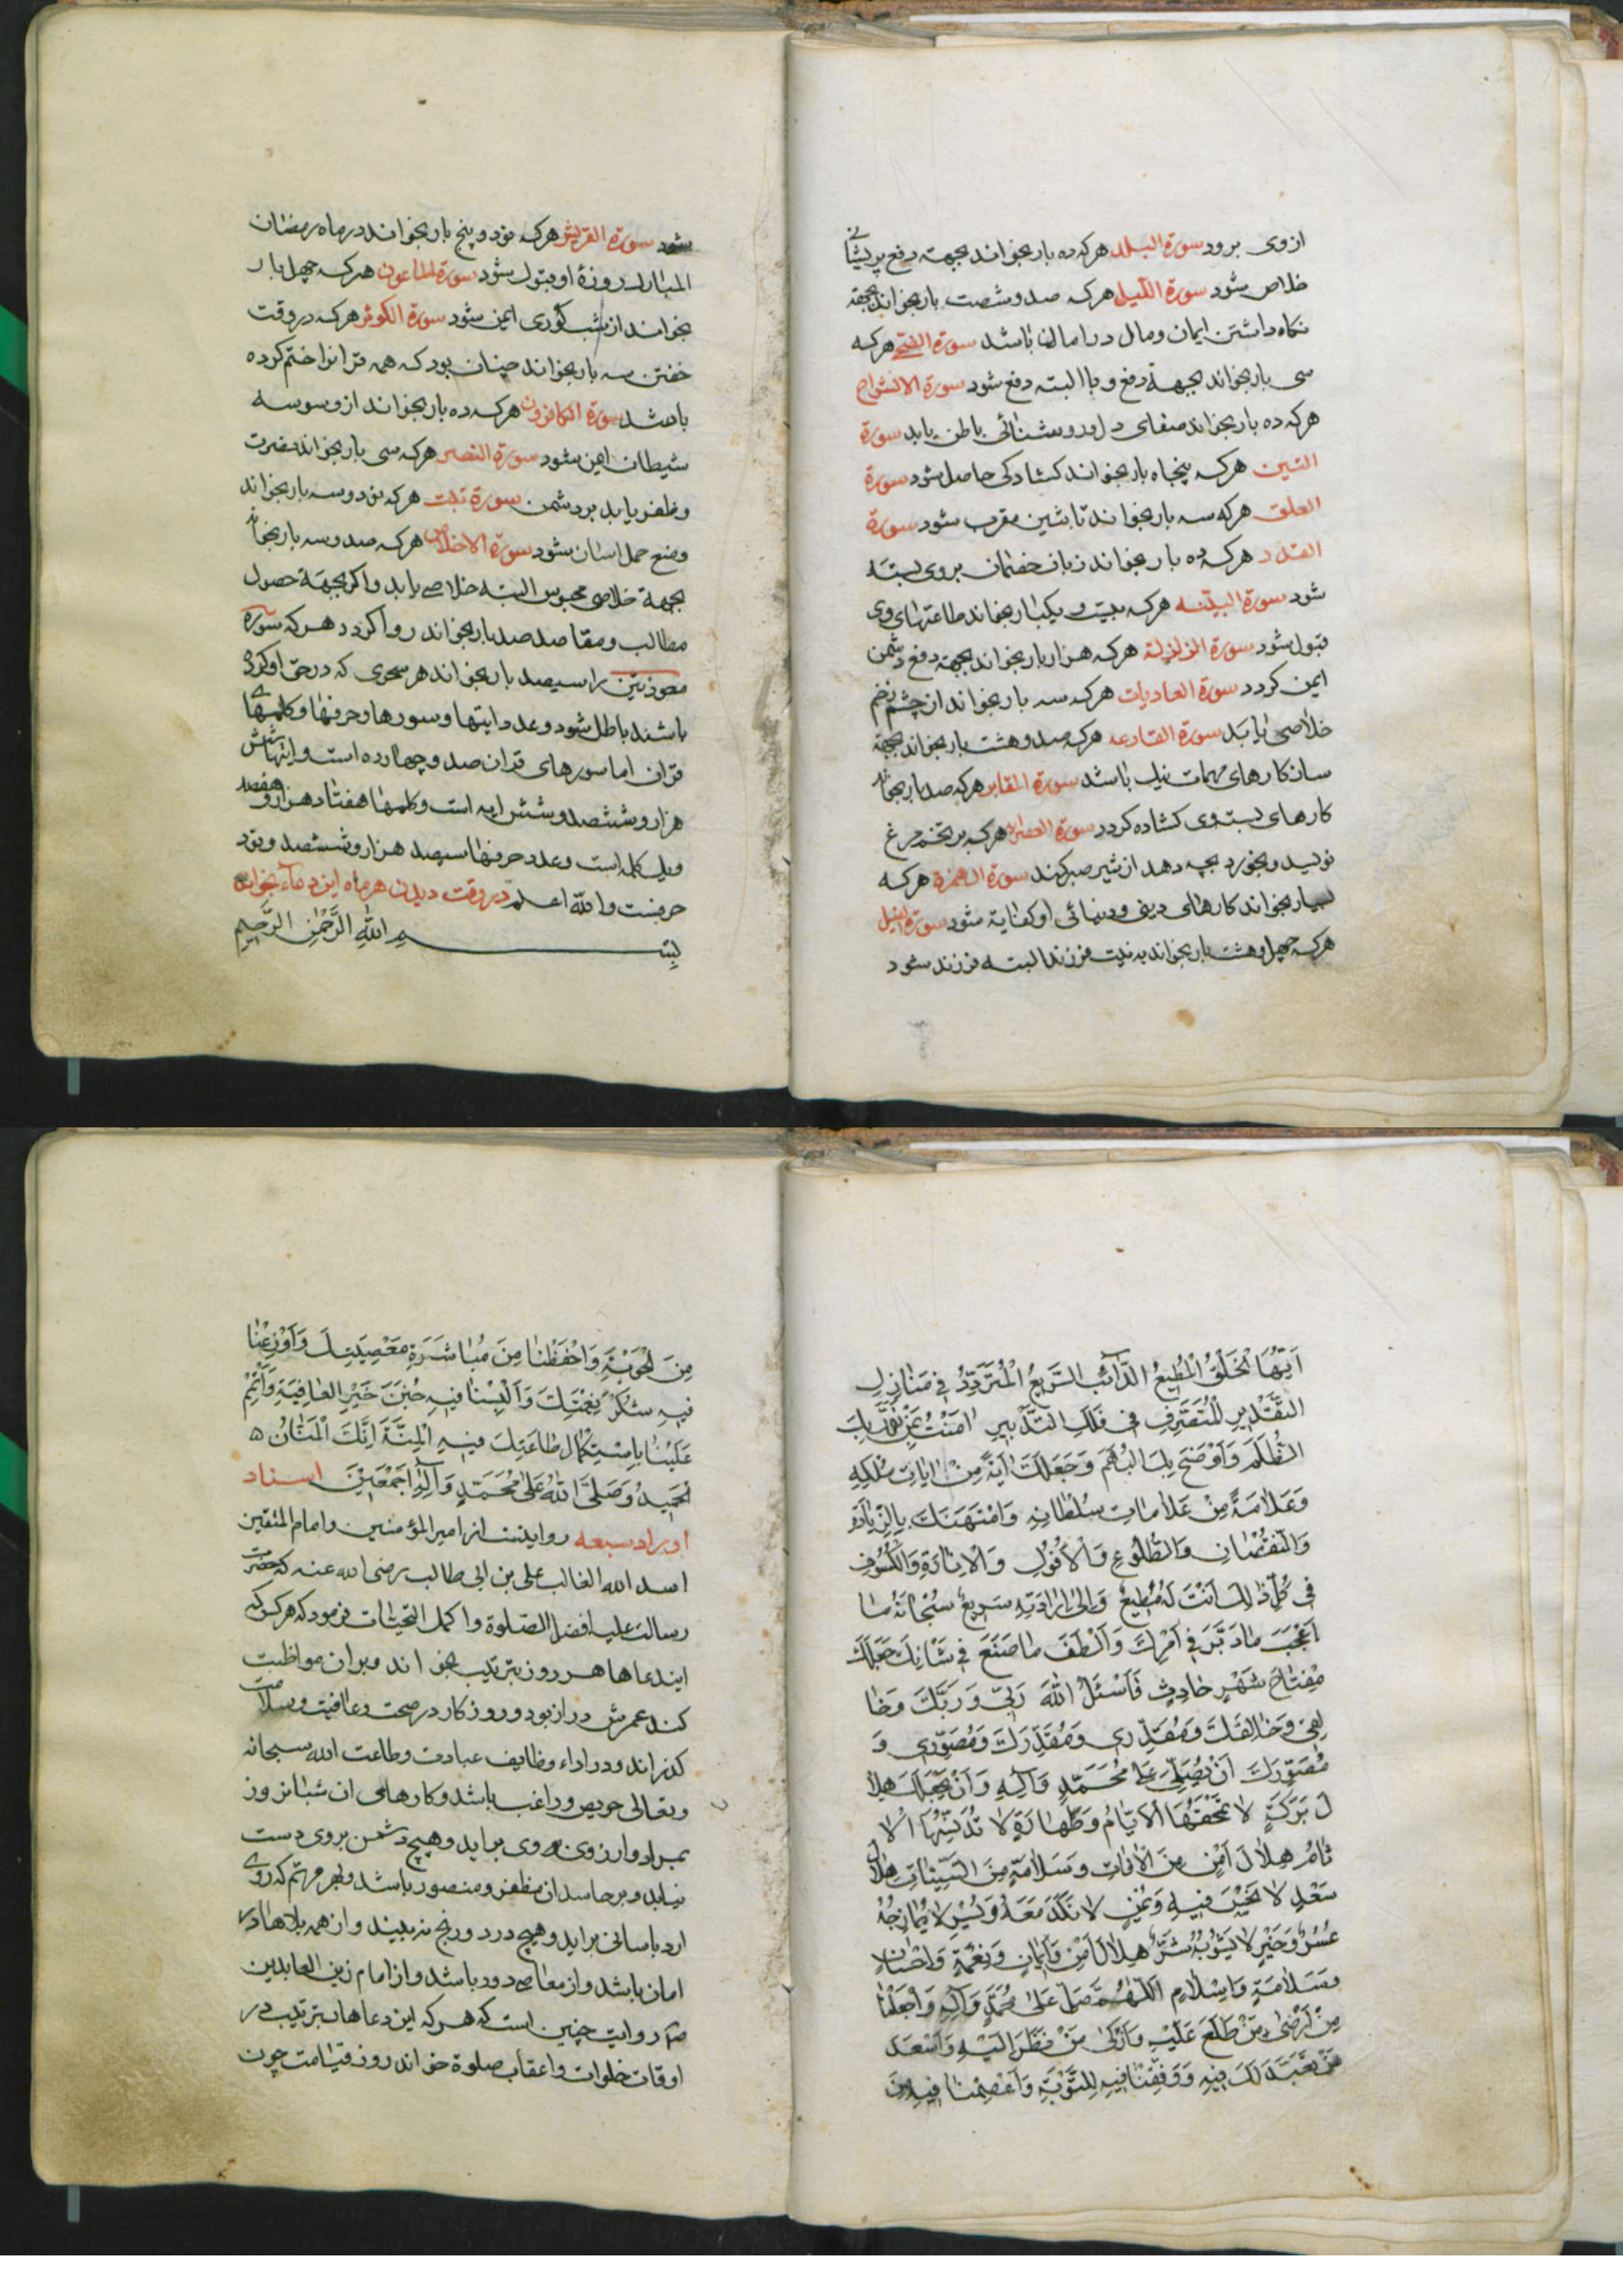 ازوی برود سورة البلد هرکه ده بار بخواند بجهة دفع پریشانی
خلاص شود سورة اللیل هرکه صد و شصت بار بخواند بجهة
نکاه داشتن ایمان ومال در امان باشد سورة الضحی هرکه
سی بار بخواند بجهة دفع وبا البته دفع شود سورة الانشراح
هرکه ده بار بخواند صفای دل و روشنائی باطن یابد سورة
التین هرکه پنجاه بار بخواند کشادکی حاصل شود سورة
العلق هرکه سه بار بخواند تا بشین مقرب شود سورة
القدر هرکه ده بار بخواند زبان خصمان بروی بسته
شود سورة البینه هرکه بیست و یکبار بخواند طاعتهای وی
قبول شود سورة الزلزلة هرکه هزار بار بخواند بجهة دفع دشمن
ایمن کردد سورة العادیات هرکه سه بار بخواند از چشم زخم
خلاصی یابد سورة القارعه هرکه صد و هشت بار بخواند بجهة
ساز کارهای مهمات نیک باشد سورة المقابر هرکه صد بار بخواند
کارهای بسته وی کشاده کردد سورة العصر هرکه بر تخم مرغ
نویسد و بخورد بچه دهد از شیر صبر کند سورة الهمزة هرکه
بسیار بخواند کارهای دینی و دنیائی او کفایة شود سورة الفیل
هرکه چهل و هشت بار بخواند به نیت فرزند البته فرزند شود
شود سورة القریش هرکه نود و پنج بار بخواند در ماه رمضان
المبارک روزهٔ او قبول شود سورة الماعون هرکه چهل بار
بخواند از شب کوری ایمن شود سورة الکوثر هرکه در وقت
خفتن سه بار بخواند چنان بود که همه قرانرا ختم کرده
باشد سورة الکافرون هرکه ده بار بخواند از وسوسه
شیطان ایمن شود سورة النصر هرکه سی بار بخواند نصرت
و ظفر یابد بر دشمن سورة تبت هرکه نود و سه بار بخواند
وضع حمل اسان شود سورة الاخلاص هرکه صد و سه بار بخواند
بجهة خلاصی محبوس البته خلاصی یابد واکر بجهة حصول
مطالب و مقاصد صد بار بخواند روا کردد هرکه سورهٔ
معوذتین را سیصد بار بخواند هر سحری که در حق او کرده
باشند باطل شود وعدد ایتها وسورها وحرفها وکلمهای
قران اما سورهای قران صد و چهارده است و ایتهاش شش
هزار و ششصد و شش ایه است وکلمها هفتاد هزار و هفصد
ویک کلمه است وعدد حرفها سیصد هزار و ششصد و نود
حرفست والله اعلم در وقت دیدن هر ماه این دعاء بخواند
بِسْمِ اللهِ الرَّحْمٰنِ الرَّحِیمِ
اَیُّهَا الْخَلْقُ الْمُطِیعُ الدَّآئِبُ السَّرِیعُ الْمُتَرَدِّدُ فِی مَنَازِلِ
التَّقْدِیرِ الْمُتَصَرِّفِ فِی فَلَكِ التَّدْبِیرِ اٰمَنْتُ بِمَنْ نَوَّرَ بِكَ
الظُّلَمَ وَاَوْضَحَ بِكَ الْبُهَمَ وَجَعَلَكَ اٰیَةً مِنْ اٰیَاتِ مُلْكِهِ
وَعَلَامَةً مِنْ عَلَامَاتِ سُلْطَانِهِ وَامْتَهَنَكَ بِالزِّیَادَةِ
وَالنُّقْصَانِ وَالطُّلُوعِ وَالْاُفُولِ وَالْاِنَارَةِ وَالْكُسُوفِ
فِی كُلِّ ذٰلِكَ اَنْتَ لَهُ مُطِیعٌ وَاِلٰی اِرَادَتِهِ سَرِیعٌ سُبْحَانَهُ مَا
اَعْجَبَ مَا دَبَّرَ فِی اَمْرِكَ وَاَلْطَفَ مَا صَنَعَ فِی شَانِكَ جَعَلَكَ
مِفْتَاحَ شَهْرٍ حَادِثٍ فَاَسْئَلُ اللهَ رَبِّی وَرَبَّكَ وَخَا
لِقِی وَخَالِقَكَ وَمُقَدِّرِی وَمُقَدِّرَكَ وَمُصَوِّرِی وَ
مُصَوِّرَكَ اَنْ یُصَلِّیَ عَلٰی مُحَمَّدٍ وَآلِهِ وَاَنْ یَجْعَلَكَ هِلَا
لَ بَرَكَةٍ لَا تَمْحَقُهَا الْاَیَّامُ وَطَهَارَةٍ لَا تُدَنِّسُهَا الْاٰ
ثَامُ هِلَالَ اَمْنٍ مِنَ الْاٰفَاتِ وَسَلَامَةٍ مِنَ السَّیِّئَاتِ هِلَالَ
سَعْدٍ لَا نَحْسَ فِیهِ وَیُمْنٍ لَا نَكَدَ مَعَهُ وَیُسْرٍ لَا یُمَازِجُهُ
عُسْرٌ وَخَیْرٍ لَا یَشُوبُهُ شَرٌّ هِلَالَ اَمْنٍ وَاِیمَانٍ وَنِعْمَةٍ وَاِحْسَانٍ
وَسَلَامَةٍ وَاِسْلَامٍ اَللّٰهُمَّ صَلِّ عَلٰی مُحَمَّدٍ وَآلِهِ وَاجْعَلْنَا
مِنْ اَرْضٰی مَنْ طَلَعَ عَلَیْهِ وَاَزْكٰی مَنْ نَظَرَ اِلَیْهِ وَاَسْعَدَ
مَنْ تَعَبَّدَ لَكَ فِیهِ وَوَفِّقْنَا فِیهِ لِلتَّوْبَةِ وَاعْصِمْنَا فِیهِ مِنَ
مِنَ الْحَوْبَةِ وَاحْفَظْنَا مِنْ مُبَاشَرَةِ مَعْصِیَتِكَ وَاَوْزِعْنَا
فِیهِ شُكْرَ نِعْمَتِكَ وَاَلْبِسْنَا فِیهِ جُنَنَ خَیْرِ الْعَافِیَةِ وَاَتْمِمْ
عَلَیْنَا بِاسْتِكْمَالِ طَاعَتِكَ فِیهِ الْمِنَّةَ اِنَّكَ الْمَنَّانُ
الْحَمِیدُ وَصَلَّی اللهُ عَلٰی مُحَمَّدٍ وَآلِهِ اَجْمَعِینَ اسناد
اوراد سبعه روایتست از امیرالمؤمنین وامام المتقین
اسد الله الغالب علی بن ابی طالب رضی الله عنه که حضرت
رسالت علیه افضل الصلوة واکمل التحیات فرمود که هرکس که
ایندعاها هر روز بترتیب بخواند وبران مواظبت
کند عمرش دراز بود و روزکار در صحت وعافیت وسلامت
کذراند ودر اداء وظایف عبادت وطاعت الله سبحانه
وتعالی حریص و راغب باشد وکارهای ان شبانروز
بمراد وارزوی وی براید وهیچ دشمن بروی دست
نیابد وبر حاسدان مظفر ومنصور باشد وبهر مهم که روی
ارد باسانی براید وهیچ درد و رنج نه بیند واز همه بلاها در
امان باشد واز معاصی دور باشد واز امام زین العابدین
روایت چنین است که هرکه این دعاها بترتیب در
اوقات خلوات واعقاب صلوة خواند روز قیامت چون